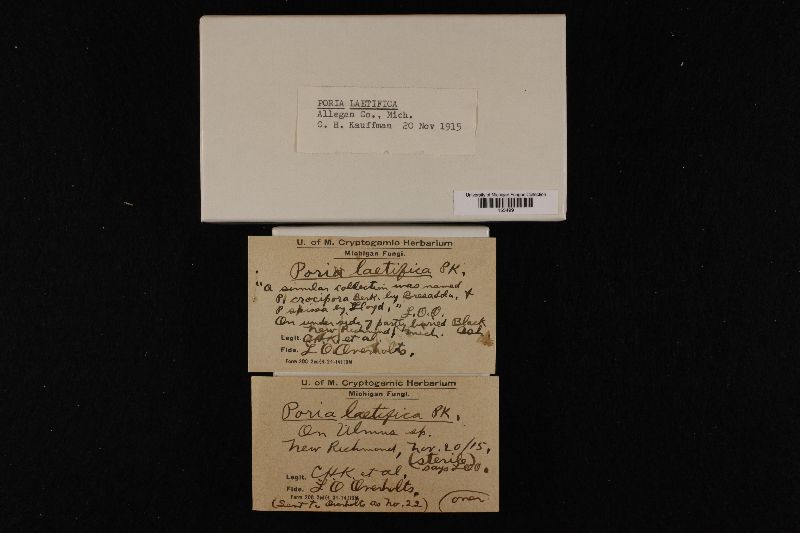 PORIA LAETIFICA
Allegan Co., Mich.
C. H. Kauffman 20 Nov 1915
University of Michigan Fungus Collection
U. of M. Cryptogamic Herbarium
Michigan Fungi.
Poria laetifica PK.
"A similar collection was named
P. crocipora Berk. by Bresadola, &
P spissa by Lloyd," L.O.O.
On under side of partly buried Black Oak
New Richmond, Mich.
Legit. CHK et al.
Fide. L O Overholts.
U. of M. Cryptogamic Herbarium
Michigan Fungi.
Poria laetifica PK.
On Ulmus sp.
New Richmond, Nov. 20/15.
(sterile) says LOO.
Legit. CHK et al.
Fide. L O Overholts.
(Sent to Overholts as no. 22) (over